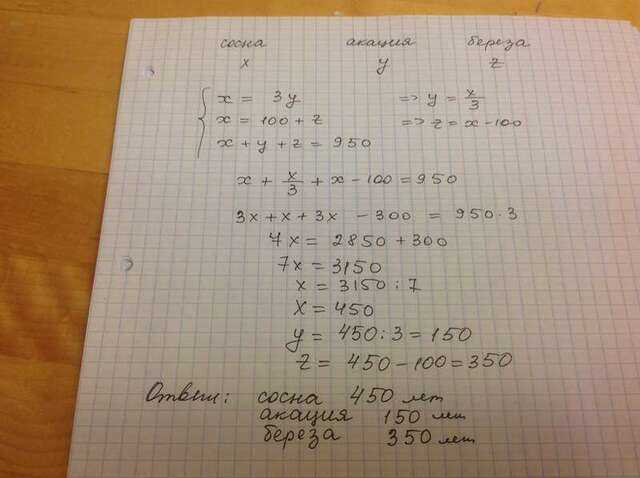 сосна акация береза
x y z
x = 3y => y = x/3
x = 100 + z => z = x - 100
x + y + z = 950
x + x/3 + x - 100 = 950
3x + x + 3x - 300 = 950 · 3
7x = 2850 + 300
7x = 3150
x = 3150 : 7
x = 450
y = 450 : 3 = 150
z = 450 - 100 = 350
Ответ: сосна 450 лет
акация 150 лет
береза 350 лет